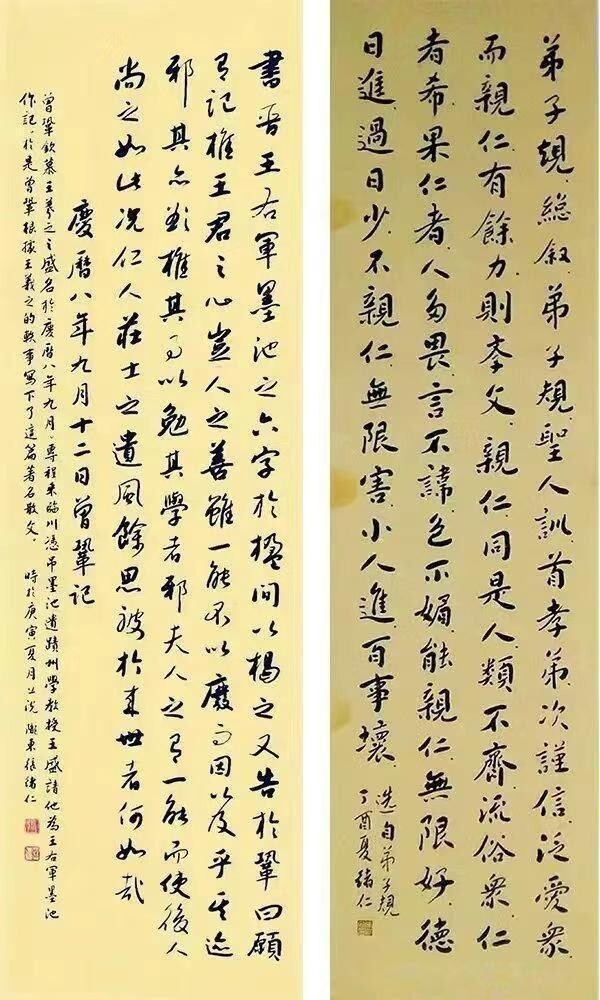 弟子規總叙弟子規聖人訓首孝弟次謹信泛愛衆
而親仁有餘力則孝父親仁同是人類不齊流俗衆仁
者希果仁者人多畏言不諱色不媚能親仁無限好德
日進過日少不親仁無限害小人進百事壞
选自弟子規
丁酉夏緒仁
書晉王右軍墨池之六字於楹間以揭之又告於鞏曰願
有記推王君之心豈人之善雖一能不以廢而因以及乎其迹
邪其亦欲推其事以勉其學者邪夫人之有一能而使後人
尚之如此况仁人莊士之遺風餘思被於來世者何如哉
慶曆八年九月十二日曾鞏記
曾鞏欽慕王羲之之盛名於慶曆八年九月、專程來臨川憑吊墨池遺蹟州學教授王盛請他為王右軍墨池
作記、於是曾鞏根據王羲之的軼事寫下了這篇著名散文。 時於庚寅夏月上浣 隴東張緒仁